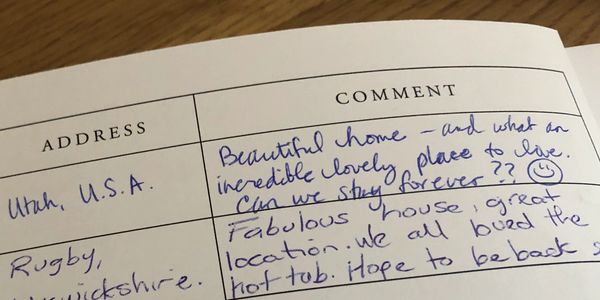 ADDRESS
COMMENT
Utah, U.S.A.
Beautiful home - and what an
incredible lovely place to live.
Can we stay forever??
Rugby,
Fabulous house, great
location. We all loved the
hot tub. Hope to be back